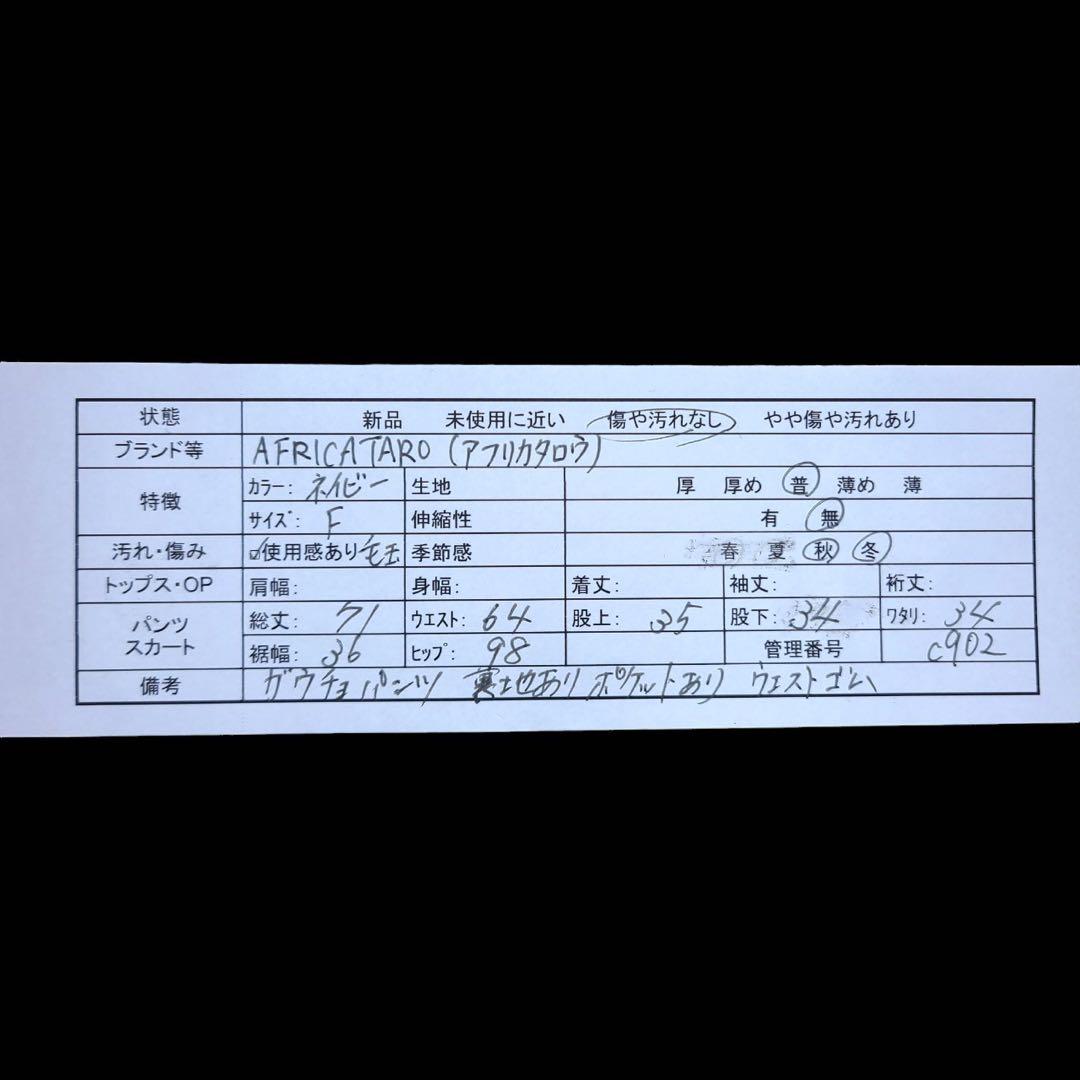 状態 新品 未使用に近い 傷や汚れなし やや傷や汚れあり
ブランド等 AFRICATARO (アフリカタロウ)
特徴 カラー: ネイビー 生地 厚 厚め 普 薄め 薄
サイズ: F 伸縮性 有 無
汚れ・傷み ☑使用感あり 毛玉 季節感 春 夏 秋 冬
トップス・OP 肩幅: 身幅: 着丈: 袖丈: 裄丈:
パンツ スカート 総丈: 71 ウエスト: 64 股上: 35 股下: 34 ワタリ: 34
裾幅: 36 ヒップ: 98 管理番号 c902
備考 ガウチョパンツ 裏地あり ポケットあり ウエストゴム